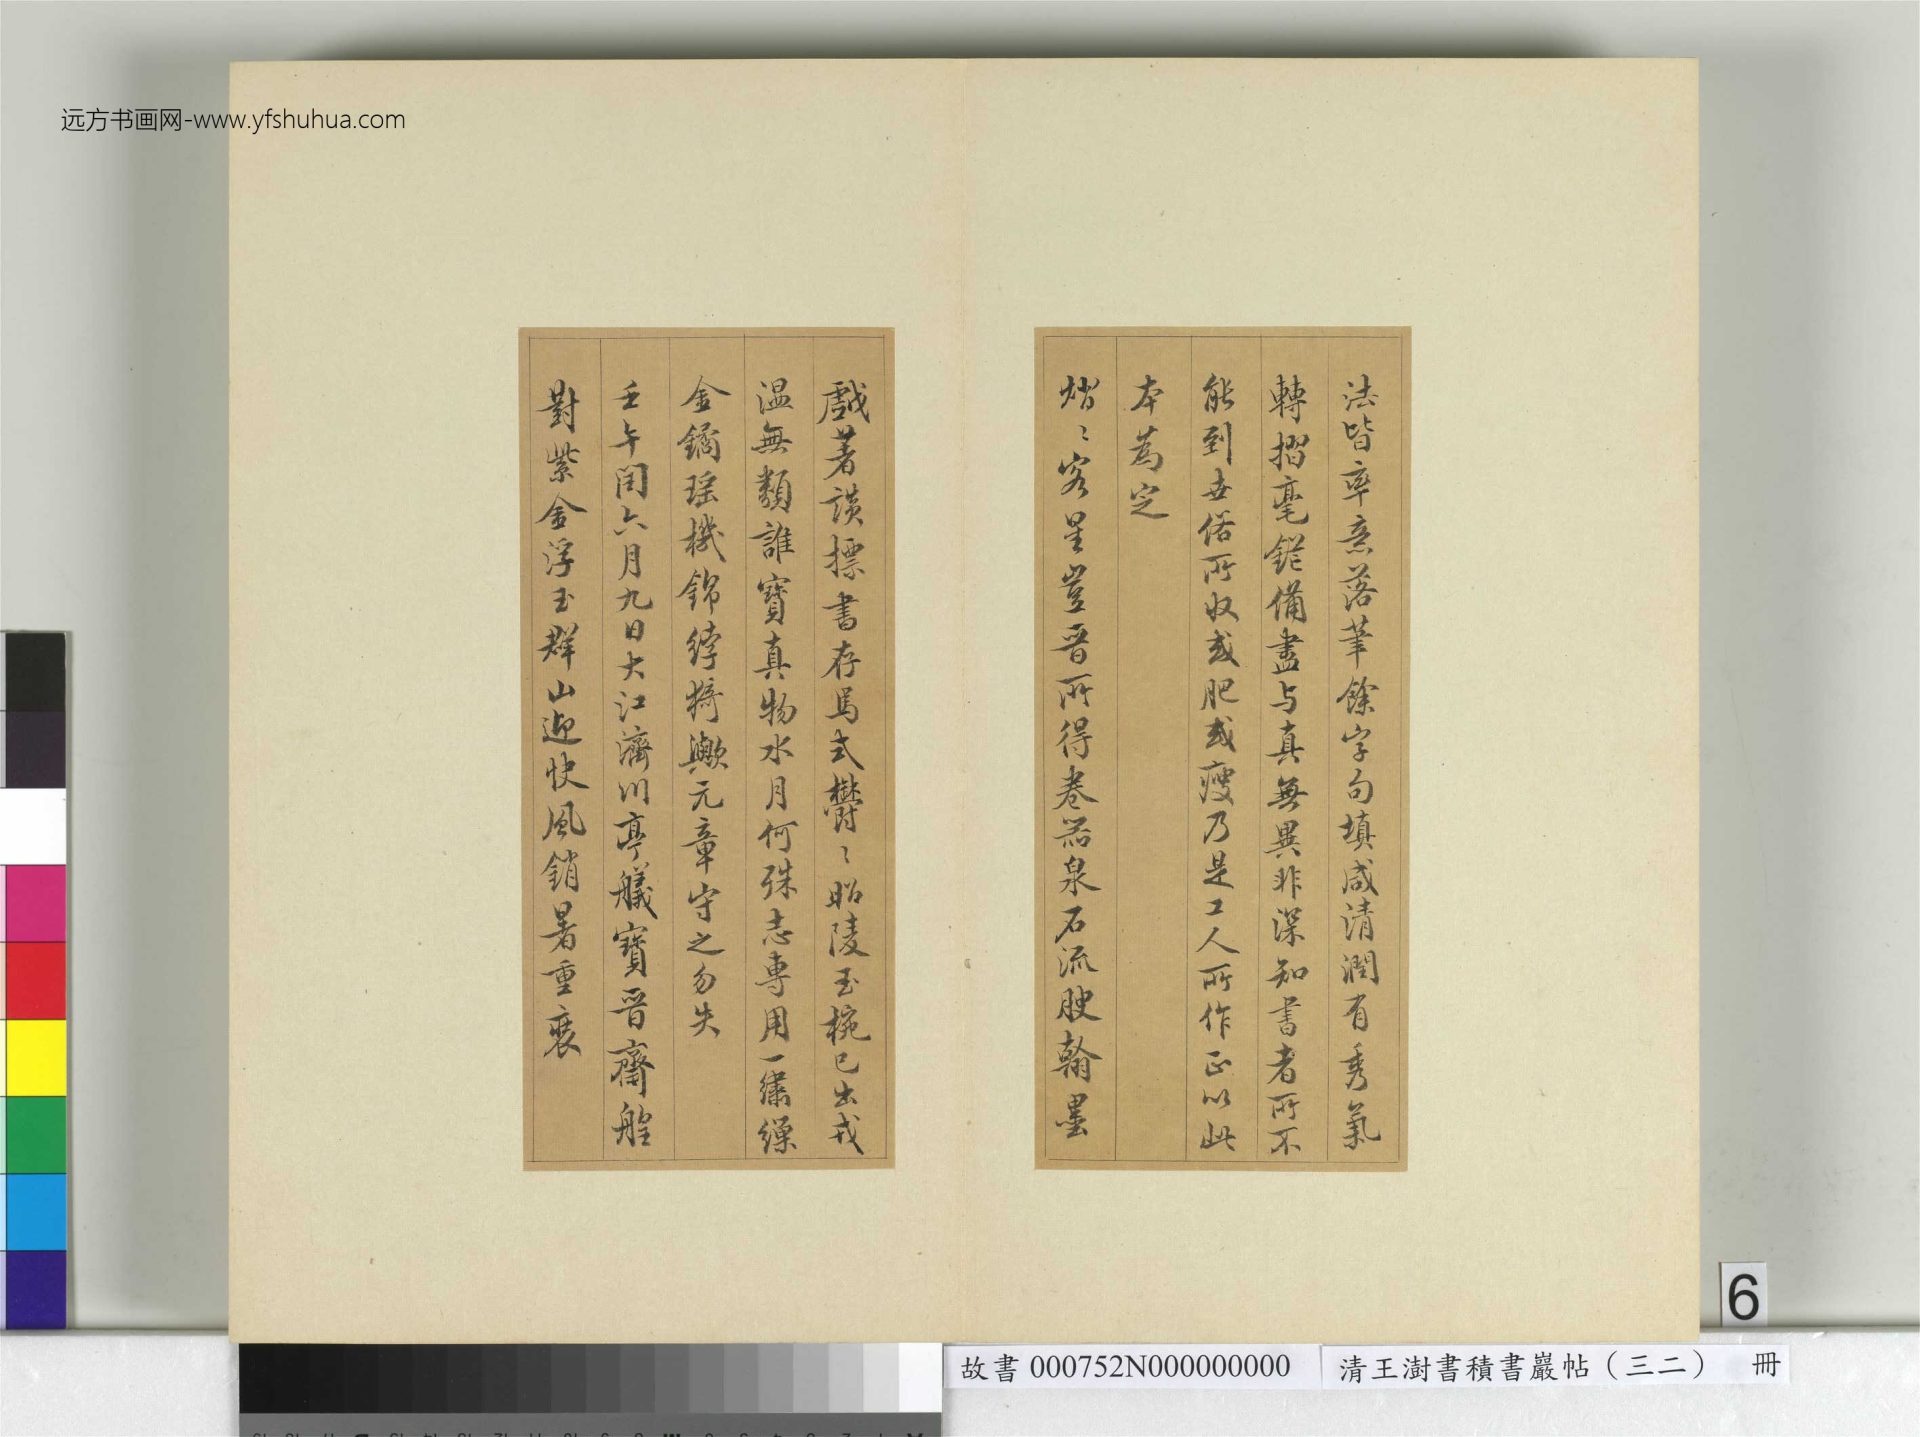 远方书画网-www.yfshuhua.com
法皆率意落筆餘字句填咸清潤有秀氣
轉摺毫鋩備盡与真無異非深知書者所不
能到世俗所收或肥或瘦乃是工人所作正以此
本為定
熠〻客星豈晉所得養器泉石流腴翰墨
戲著談標書存馬式鬱〻昭陵玉椀已出戎
温無類誰寶真物水月何殊志専用一繡繅
金鐍瑶機錦綍猗歟元章守之勿失
壬午閏六月九日大江濟川亭艤寶晉齋艎
對紫金浮玉群山迎快風銷暑重裝
6
故書 000752N000000000
清王澍書積書巖帖（三二） 冊